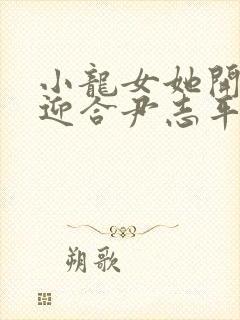 小龍女她開
迎合尹志平
朔歌